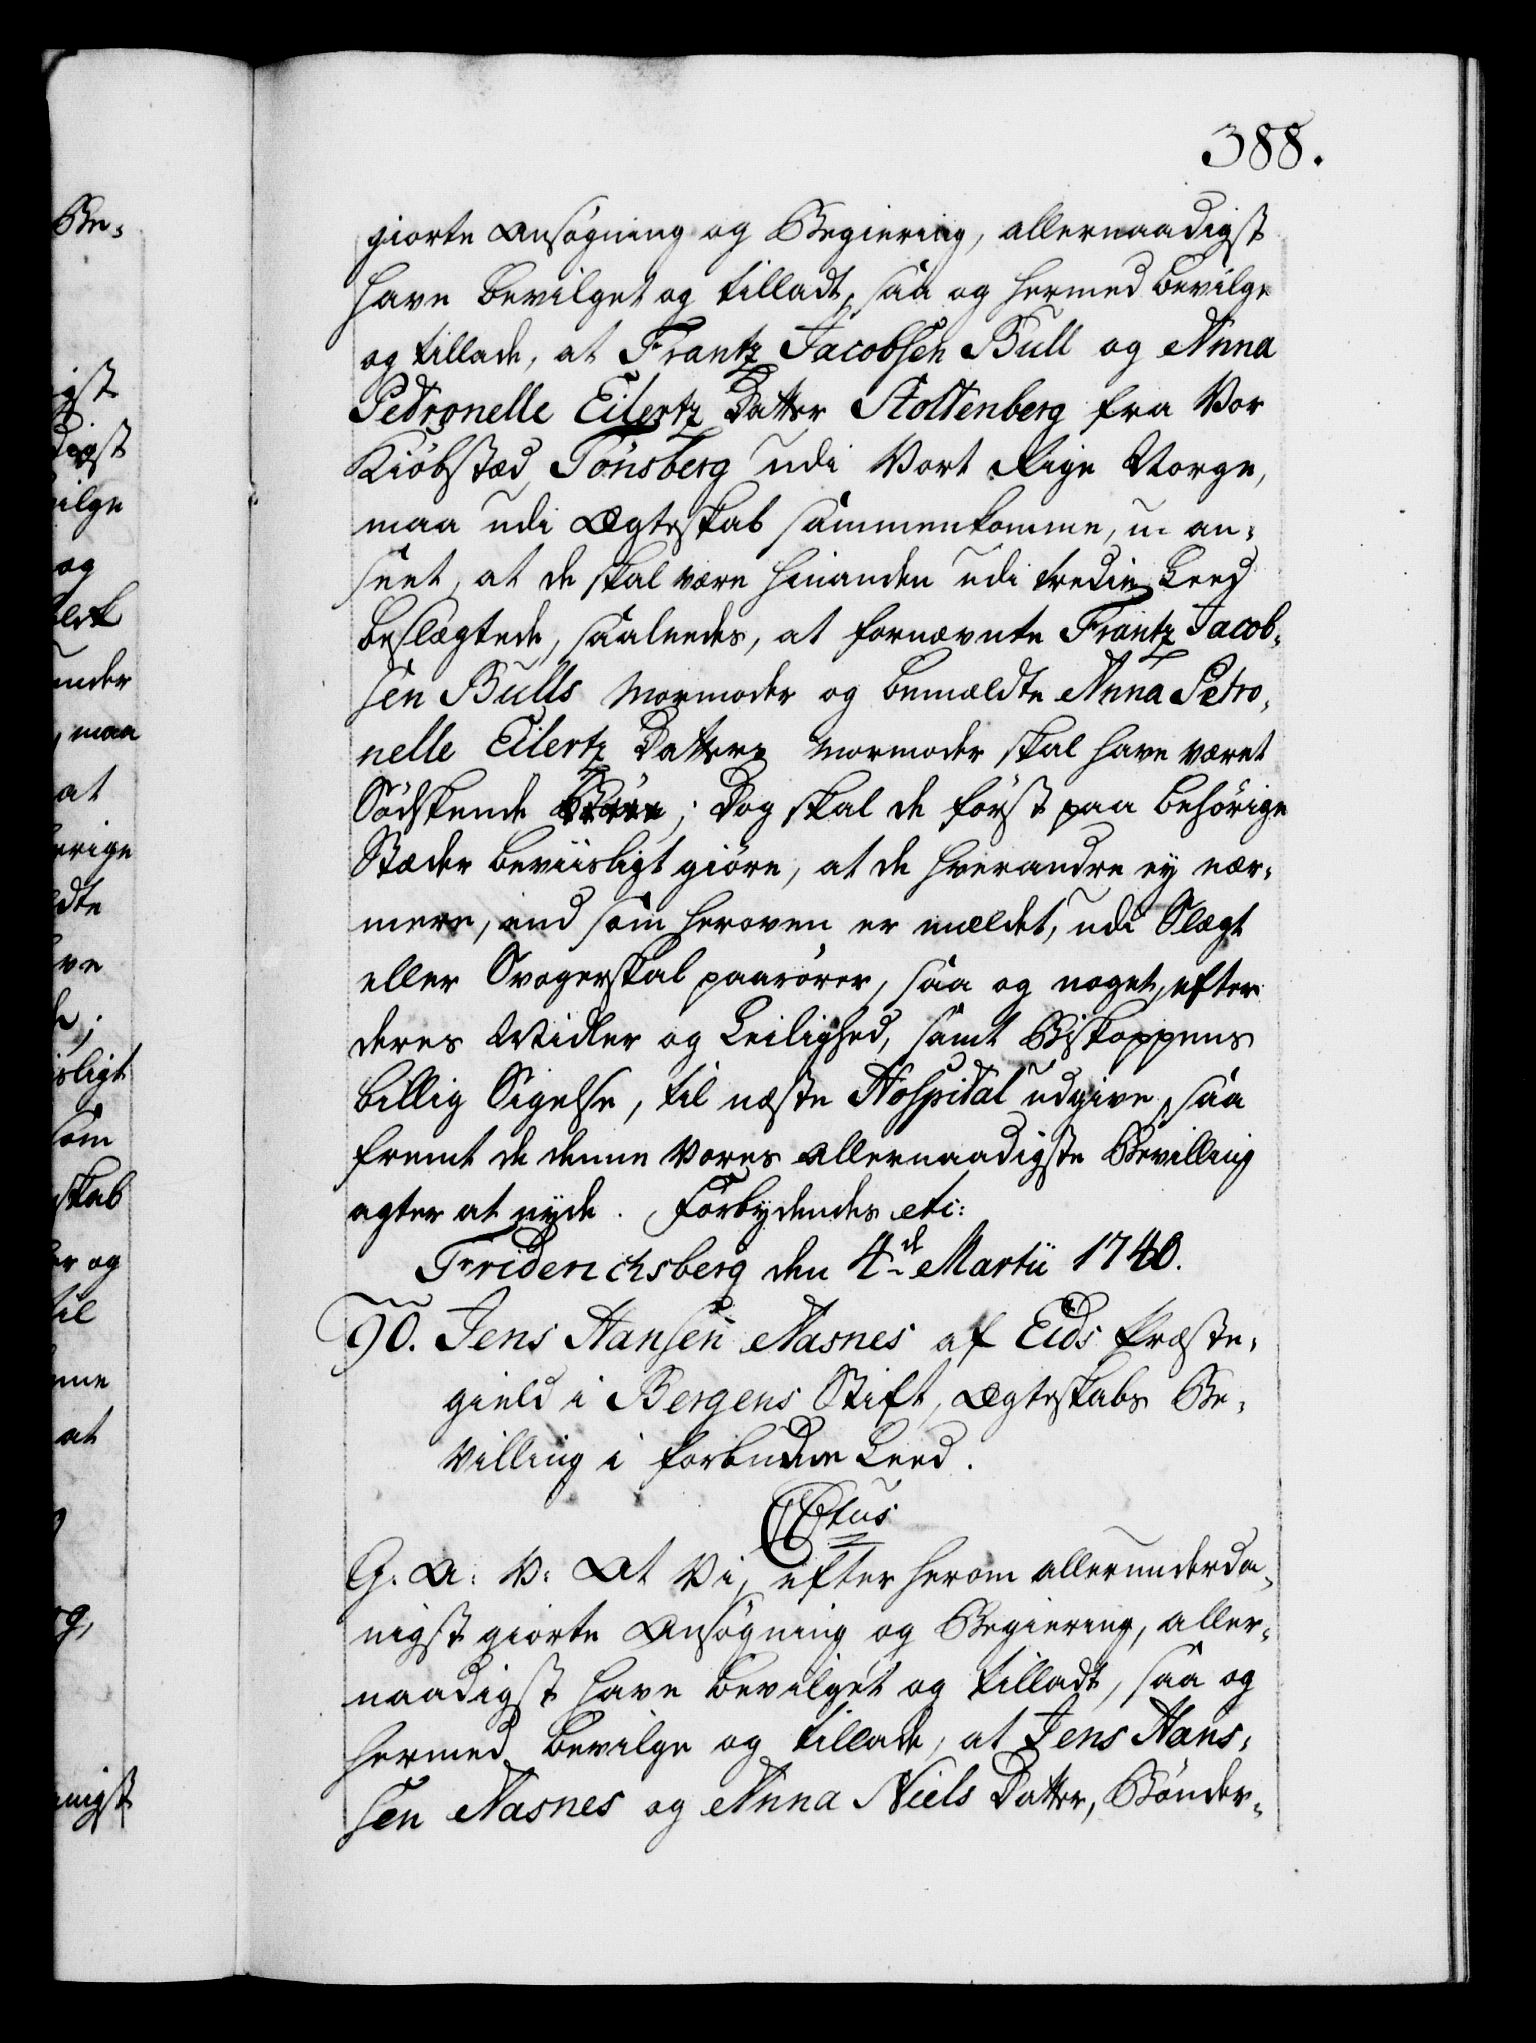 388.
giorte Ansøgning og Begiering, allernaadigst
have bevilget og tilladt, saa og hermed bevilge
og tillade, at Frantz Jacobsen Bull og Anna
Pedronelle Eilertz Datter Stoltenberg fra Vor
Kiøbstæd Tønsberg udi Vort Rige Norge,
maa udi Ægteskab sammenkomme, u-an-
seet, at de skal være hinanden udi tredie Leed
beslægtede, saaledes, at fornævnte Frantz Jacob-
sen Bulls Mormoder og bemældte Anna Petro-
nelle Eilertz Datters Mormoder skal have været
Sødskende Børn; Dog skal de først paa behørige
Stæder beviisligt giøre, at de hverandre ey nær-
mere, end som heroven er meldet, udi Slægt
eller Svogerskab paarører, saa og noget, efter
deres Midler og Leilighed, samt Biskoppens
billig Sigelse, til næste Hospital udgive, saa
fremt de denne Vores allernaadigste Bevilling
agter at nyde. Forbydendes etc:
Friderichsberg den 4de Martii 1740.
90. Jens Hansen Nasnes af Eids Præste-
gield i Bergens Stift, Ægteskabs Be-
villing i forbudne Leed.
C6tus
G. A: V: At Vi, efter herom allerunderda-
nigst giorte Ansøgning og Begiering, aller-
naadigst have bevilget og tilladt, saa og
hermed bevilge og tillade, at Jens Hans-
sen Nasnes og Anna Niels Datter, Bønder-